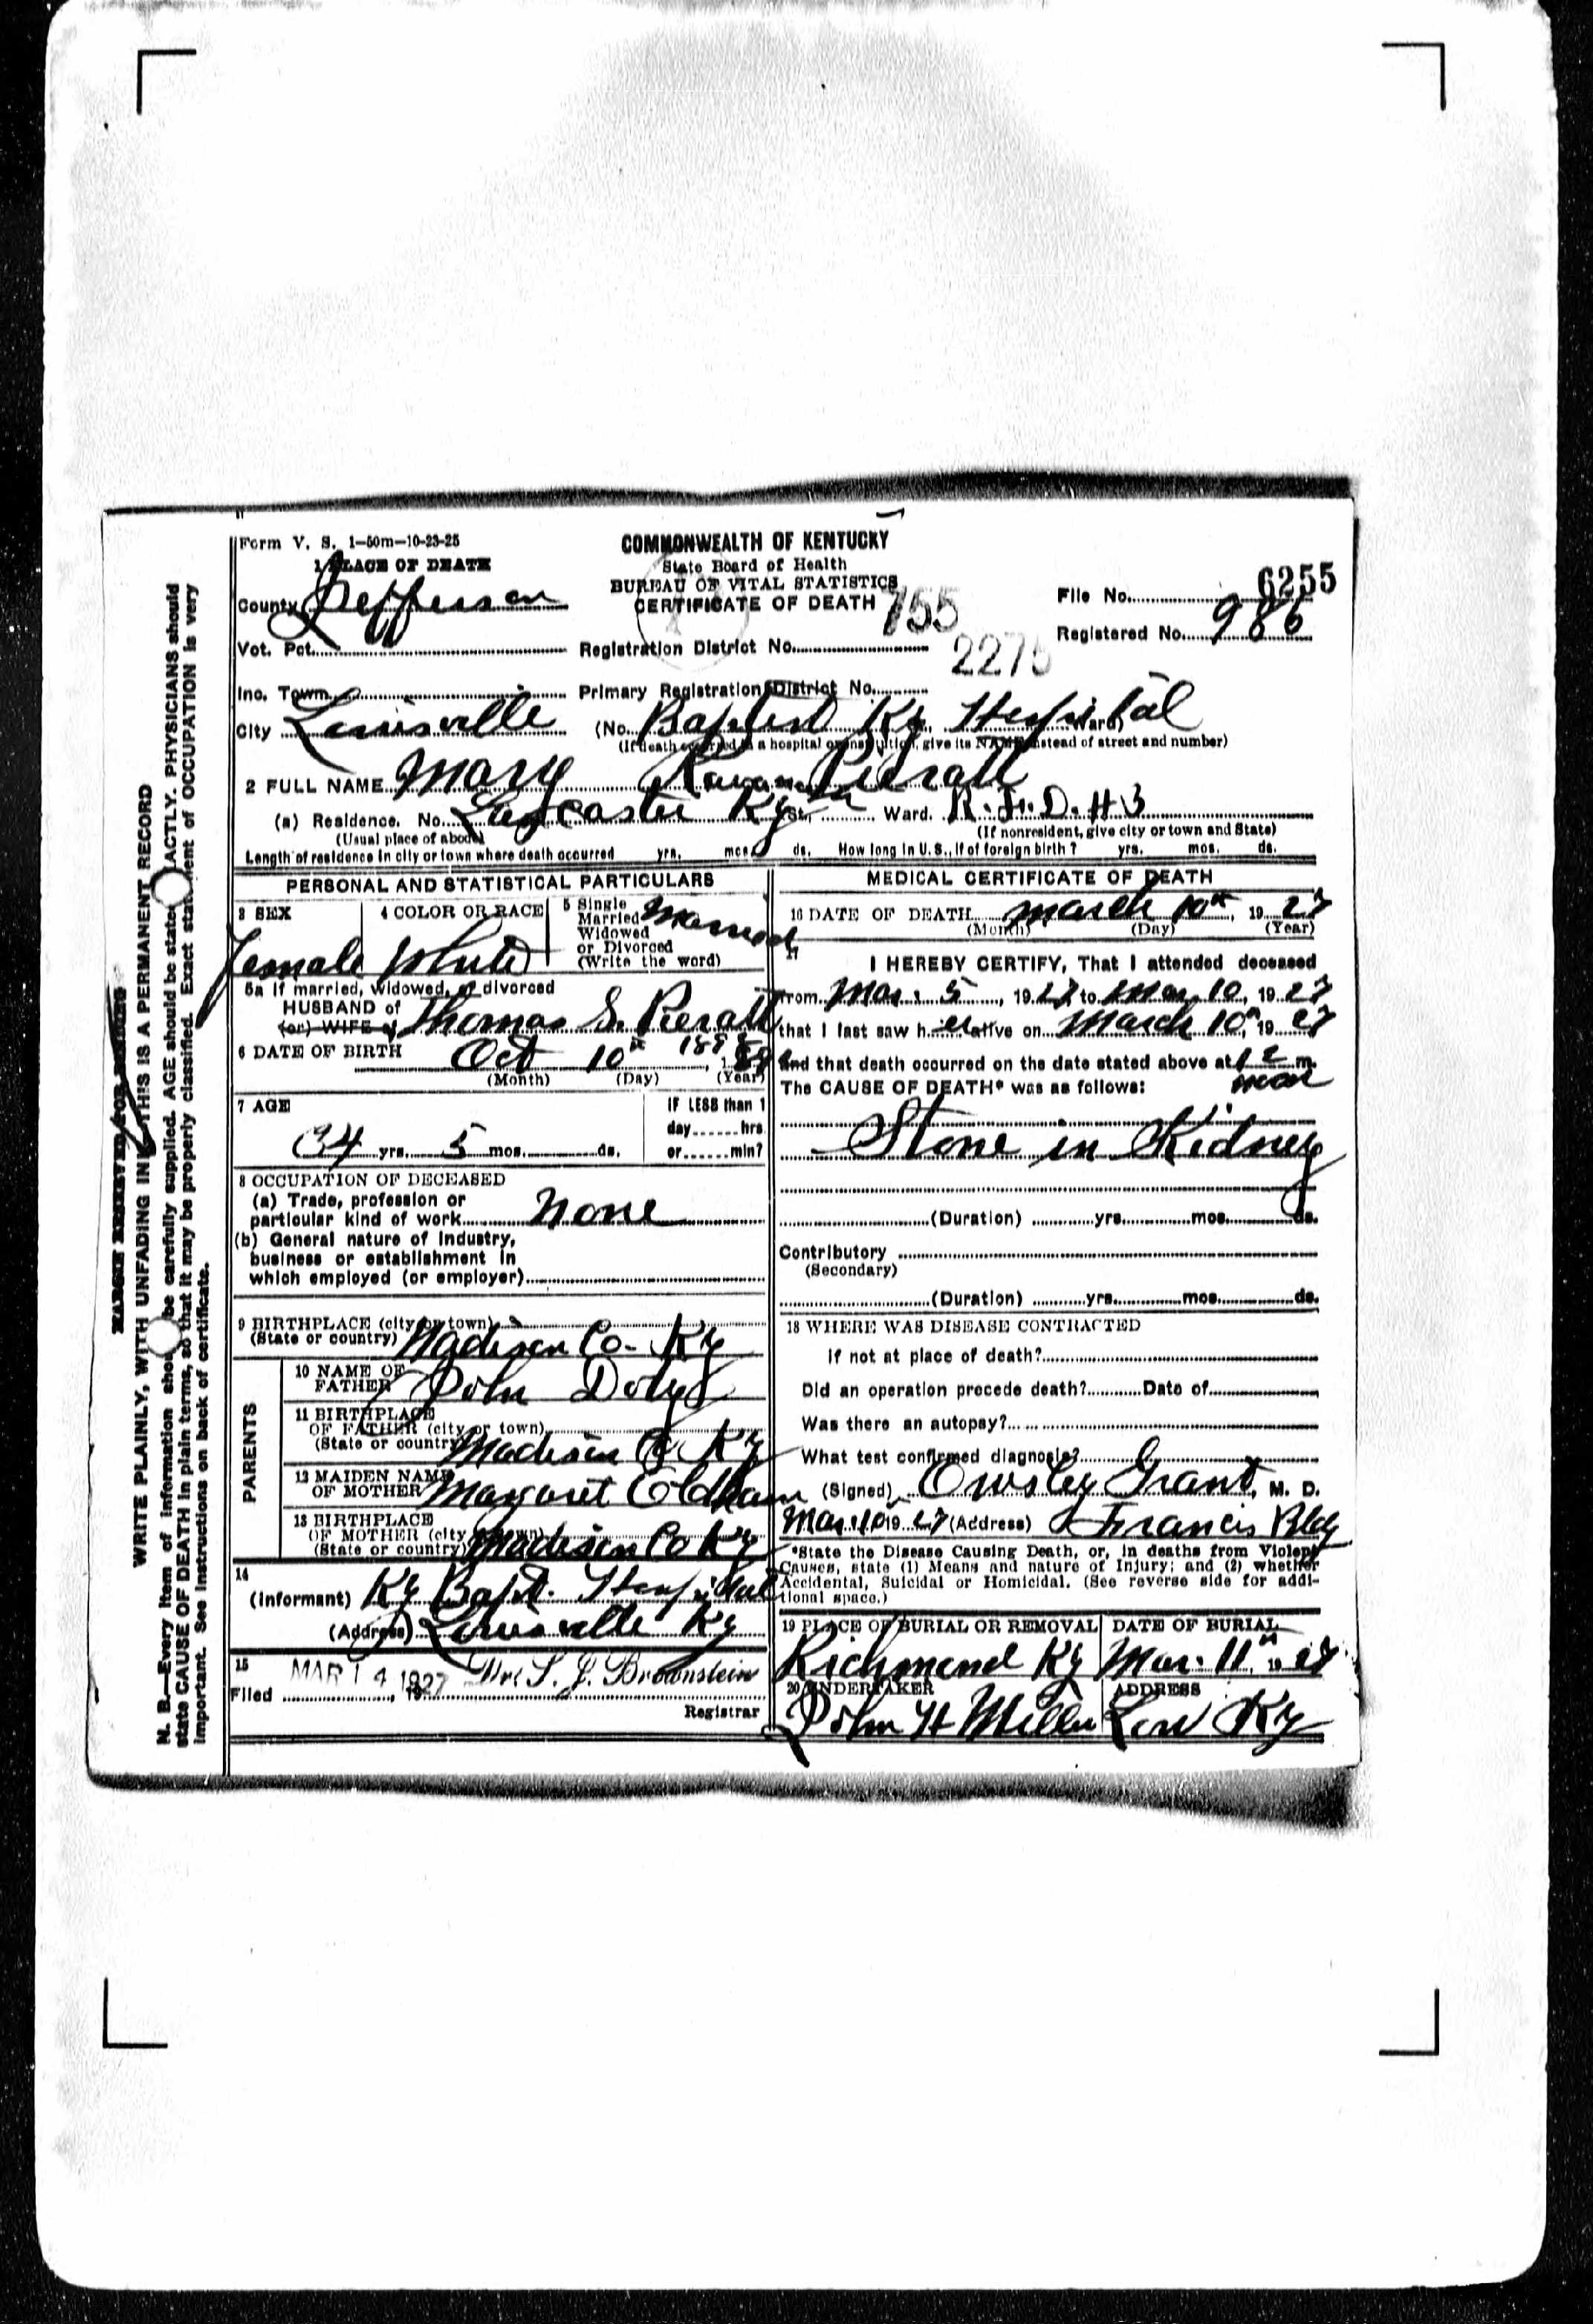 Form V. S. 1-50m-10-23-25
1 PLACE OF DEATH
COMMONWEALTH OF KENTUCKY
State Board of Health
BUREAU OF VITAL STATISTICS
CERTIFICATE OF DEATH
File No. 6255
County Jefferson
755
Registered No. 986
Vot. Pct. Registration District No.
2275
Inc. Town Primary Registration District No.
City Louisville (No. Baptist Ky. Hospital Ward)
(If death occurred in a hospital or institution, give its NAME instead of street and number)
2 FULL NAME Mary Pieratt
(a) Residence. No. Lancaster Ky St., Ward. R.F.D. #3
(Usual place of abode) (If nonresident, give city or town and State)
Length of residence in city or town where death occurred yrs. mos. ds. How long in U. S., if of foreign birth? yrs. mos. ds.
PERSONAL AND STATISTICAL PARTICULARS
3 SEX
Female
4 COLOR OR RACE
White
5 Single
Married
Widowed
or Divorced
(Write the word)
Married
5a If married, widowed, or divorced
HUSBAND of
(or) WIFE of Thomas S. Pieratt
6 DATE OF BIRTH Oct 10th
(Month) (Day) (Year)
7 AGE
34 yrs. 5 mos. ds.
IF LESS than 1
day hrs
or min?
8 OCCUPATION OF DECEASED
(a) Trade, profession or
particular kind of work None
(b) General nature of Industry,
business or establishment in
which employed (or employer)
9 BIRTHPLACE (city or town)
(State or country) Madison Co. Ky
PARENTS
10 NAME OF
FATHER John Doty
11 BIRTHPLACE
OF FATHER (city or town)
(State or country) Madison Co Ky
12 MAIDEN NAME
OF MOTHER Margaret Oldham
13 BIRTHPLACE
OF MOTHER (city or town)
(State or country) Madison Co Ky
14
(Informant) Ky Bapt. Hospital
(Address) Louisville Ky
15
Filed MAR 14 1927, 19 Dr. S. J. Brownstein
Registrar
MEDICAL CERTIFICATE OF DEATH
16 DATE OF DEATH March 10th, 19 27
(Month) (Day) (Year)
17
I HEREBY CERTIFY, That I attended deceased
from Mar. 5, 19 27, to Mar. 10, 19 27
that I last saw h er alive on March 10th, 19 27
and that death occurred on the date stated above at 12 m.
The CAUSE OF DEATH* was as follows:
Stone in Kidney
(Duration) yrs. mos. ds.
Contributory
(Secondary)
(Duration) yrs. mos. ds.
18 WHERE WAS DISEASE CONTRACTED
If not at place of death?
Did an operation precede death? Date of
Was there an autopsy?
What test confirmed diagnosis?
(Signed) Owsley Grant, M. D.
Mar. 10 19 27 (Address) Francis Bldg
*State the Disease Causing Death, or, in deaths from Violent
Causes, state (1) Means and nature of Injury; and (2) whether
Accidental, Suicidal or Homicidal. (See reverse side for addi-
tional space.)
19 PLACE OF BURIAL OR REMOVAL
Richmond Ky
DATE OF BURIAL
Mar. 11th 19 27
20 UNDERTAKER
John H Miller
ADDRESS
Lou Ky
MARGIN RESERVED FOR BINDING
WRITE PLAINLY, WITH UNFADING INK—THIS IS A PERMANENT RECORD
N. B.—Every item of information should be carefully supplied. AGE should be stated EXACTLY. PHYSICIANS should
state CAUSE OF DEATH in plain terms, so that it may be properly classified. Exact statement of OCCUPATION is very
important. See instructions on back of certificate.